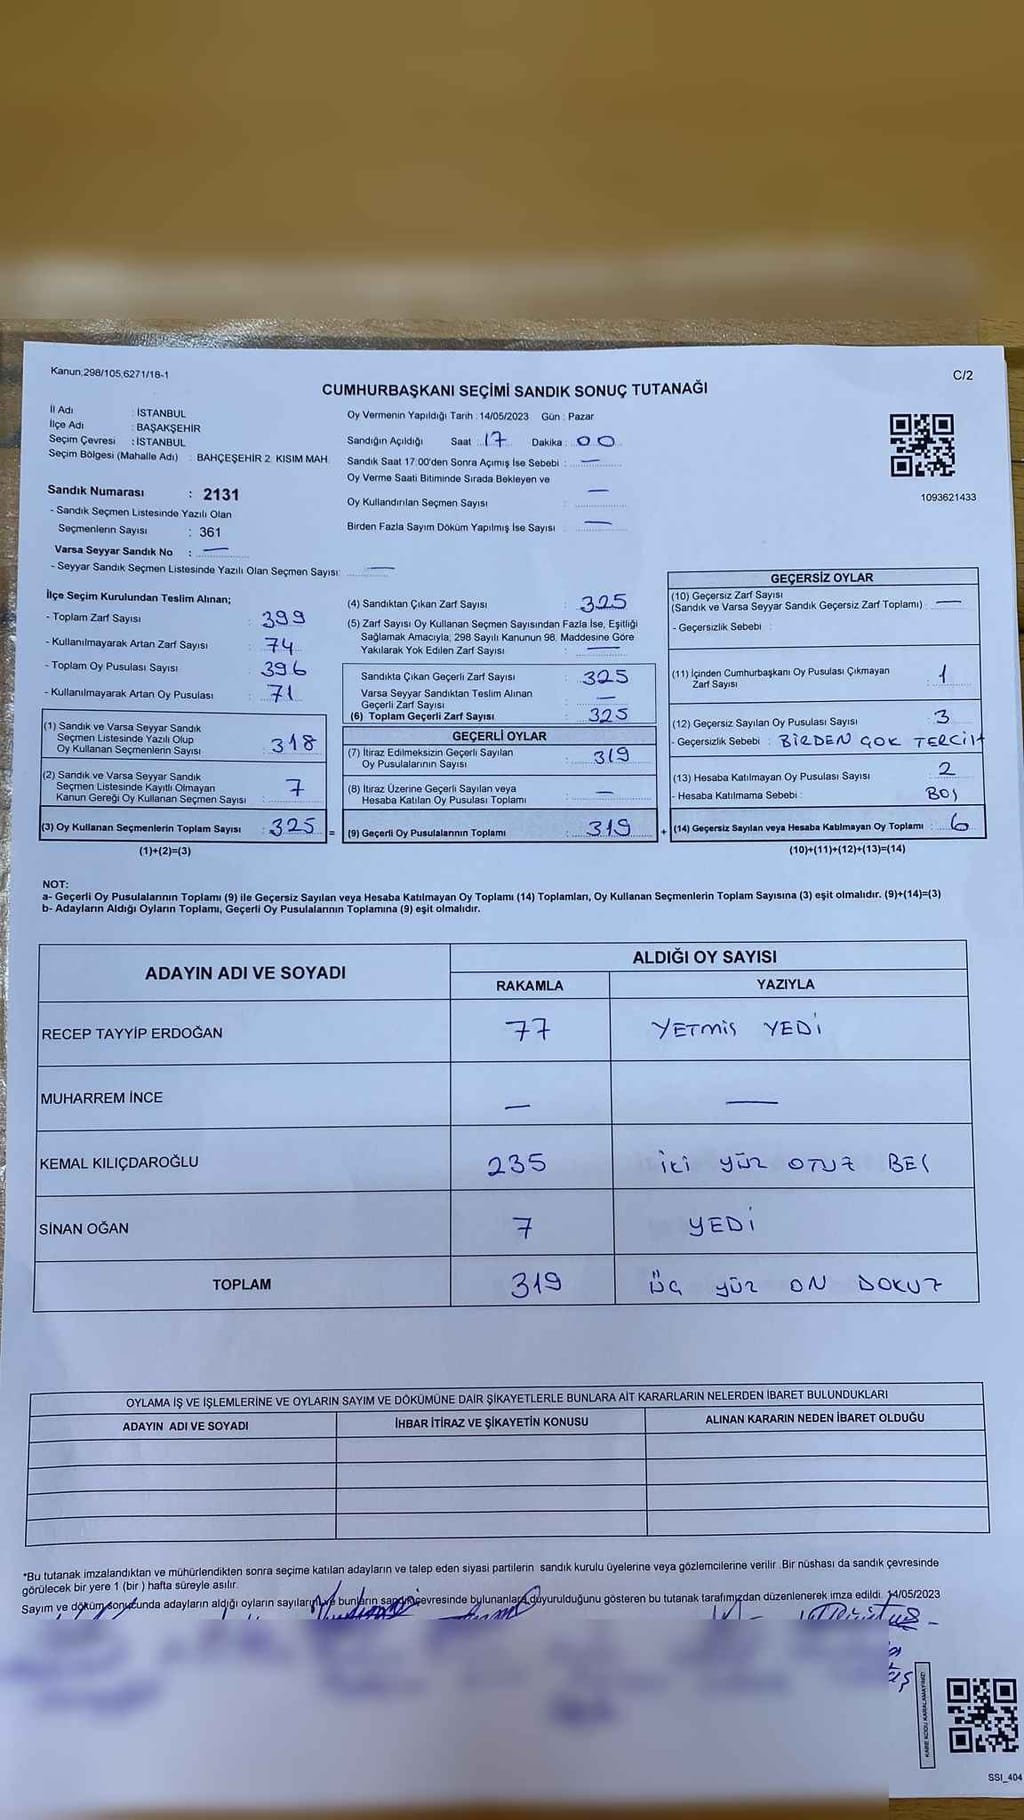 Kanun,298/105,6271/18-1
C/2
CUMHURBAŞKANI SEÇİMİ SANDIK SONUÇ TUTANAĞI
İl Adı : İSTANBUL
İlçe Adı : BAŞAKŞEHİR
Seçim Çevresi : İSTANBUL
Seçim Bölgesi (Mahalle Adı) : BAHÇEŞEHİR 2. KISIM MAH.
Sandık Numarası : 2131
- Sandık Seçmen Listesinde Yazılı Olan
Seçmenlerin Sayısı : 361
Varsa Seyyar Sandık No : —
- Seyyar Sandık Seçmen Listesinde Yazılı Olan Seçmen Sayısı: —
Oy Vermenin Yapıldığı Tarih : 14/05/2023 Gün : Pazar
Sandığın Açıldığı Saat : 17 Dakika : 00
Sandık Saat 17:00'den Sonra Açımış İse Sebebi : —
Oy Verme Saati Bitiminde Sırada Bekleyen ve
Oy Kullandırılan Seçmen Sayısı : —
Birden Fazla Sayım Döküm Yapılmış İse Sayısı : —
1093621433
İlçe Seçim Kurulundan Teslim Alınan;
- Toplam Zarf Sayısı : 399
- Kullanılmayarak Artan Zarf Sayısı : 74
- Toplam Oy Pusulası Sayısı : 396
- Kullanılmayarak Artan Oy Pusulası : 71
(1) Sandık ve Varsa Seyyar Sandık
Seçmen Listesinde Yazılı Olup
Oy Kullanan Seçmenlerin Sayısı : 318
(2) Sandık ve Varsa Seyyar Sandık
Seçmen Listesinde Kayıtlı Olmayan
Kanun Gereği Oy Kullanan Seçmen Sayısı : 7
(3) Oy Kullanan Seçmenlerin Toplam Sayısı : 325 =
(1)+(2)=(3)
(4) Sandıktan Çıkan Zarf Sayısı : 325
(5) Zarf Sayısı Oy Kullanan Seçmen Sayısından Fazla İse, Eşitliği
Sağlamak Amacıyla, 298 Sayılı Kanunun 98. Maddesine Göre
Yakılarak Yok Edilen Zarf Sayısı : —
Sandıkta Çıkan Geçerli Zarf Sayısı : 325
Varsa Seyyar Sandıktan Teslim Alınan
Geçerli Zarf Sayısı : —
(6) Toplam Geçerli Zarf Sayısı : 325
GEÇERLİ OYLAR
(7) İtiraz Edilmeksizin Geçerli Sayılan
Oy Pusulalarının Sayısı : 319
(8) İtiraz Üzerine Geçerli Sayılan veya
Hesaba Katılan Oy Pusulası Toplamı : —
(9) Geçerli Oy Pusulalarının Toplamı : 319 +
GEÇERSİZ OYLAR
(10) Geçersiz Zarf Sayısı
(Sandık ve Varsa Seyyar Sandık Geçersiz Zarf Toplamı) : —
- Geçersizlik Sebebi :
(11) İçinden Cumhurbaşkanı Oy Pusulası Çıkmayan
Zarf Sayısı : 1
(12) Geçersiz Sayılan Oy Pusulası Sayısı : 3
- Geçersizlik Sebebi : BİRDEN ÇOK TERCİH
(13) Hesaba Katılmayan Oy Pusulası Sayısı : 2
- Hesaba Katılmama Sebebi : BOŞ
(14) Geçersiz Sayılan veya Hesaba Katılmayan Oy Toplamı : 6
(10)+(11)+(12)+(13)=(14)
NOT:
a- Geçerli Oy Pusulalarının Toplamı (9) ile Geçersiz Sayılan veya Hesaba Katılmayan Oy Toplamı (14) Toplamları, Oy Kullanan Seçmenlerin Toplam Sayısına (3) eşit olmalıdır. (9)+(14)=(3)
b- Adayların Aldığı Oyların Toplamı, Geçerli Oy Pusulalarının Toplamına (9) eşit olmalıdır.
ADAYIN ADI VE SOYADI
ALDIĞI OY SAYISI
RAKAMLA YAZIYLA
RECEP TAYYİP ERDOĞAN 77 YETMİŞ YEDİ
MUHARREM İNCE — —
KEMAL KILIÇDAROĞLU 235 İki yüz OTUZ BEŞ
SİNAN OĞAN 7 YEDİ
TOPLAM 319 Üç yüz ON DOKUZ
OYLAMA İŞ VE İŞLEMLERİNE VE OYLARIN SAYIM VE DÖKÜMÜNE DAİR ŞİKAYETLERLE BUNLARA AİT KARARLARIN NELERDEN İBARET BULUNDUKLARI
ADAYIN ADI VE SOYADI İHBAR İTİRAZ VE ŞİKAYETİN KONUSU ALINAN KARARIN NEDEN İBARET OLDUĞU
*Bu tutanak imzalandıktan ve mühürlendikten sonra seçime katılan adayların ve talep eden siyasi partilerin sandık kurulu üyelerine veya gözlemcilerine verilir. Bir nüshası da sandık çevresinde
görülecek bir yere 1 (bir ) hafta süreyle asılır.
Sayım ve döküm sonucunda adayların aldığı oyların sayıları ve bunların sandık çevresinde bulunanlara duyurulduğunu gösteren bu tutanak tarafımızdan düzenlenerek imza edildi. 14/05/2023
KARE KODU KARALAMAYINIZ!
SSI_404